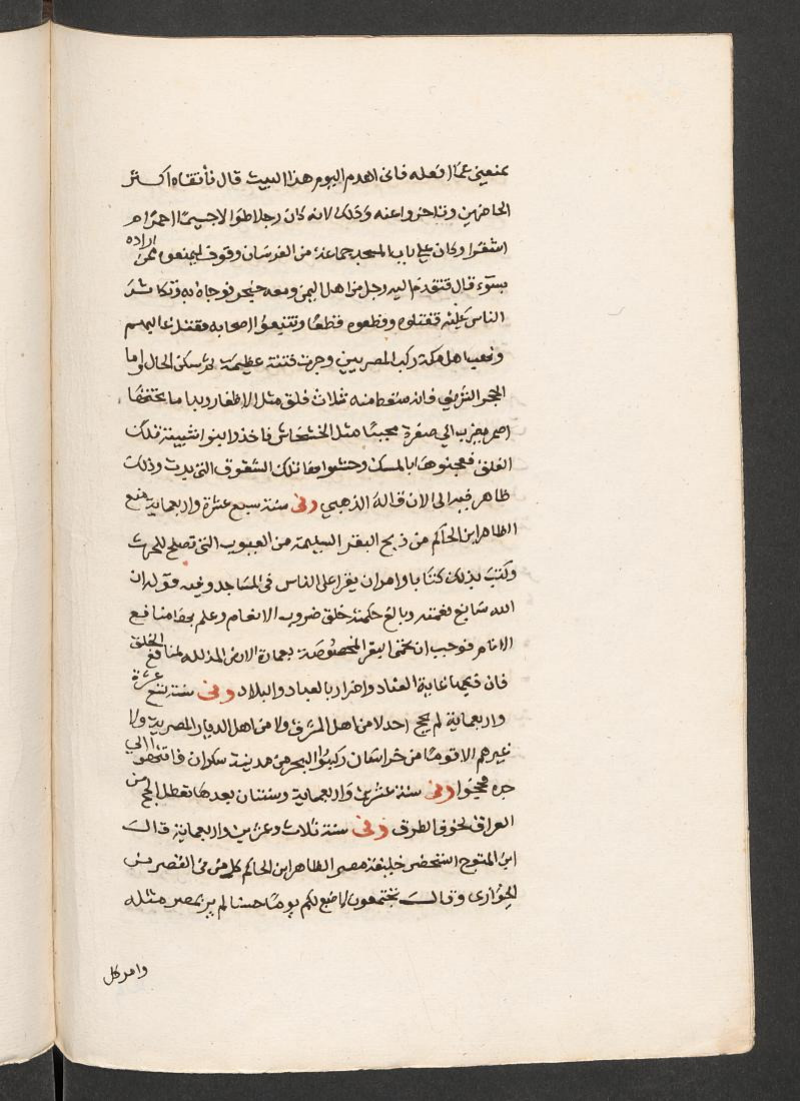 يمنعنى عما افعله فانى اهدم اليوم هذا البيت قال فأتقاه اكثر
الحاضرين وتاخروا عنه وذلك لانه كان رجلا طوالا جسيما احمرا
اشقرا وكان على باب المسجد جماعة من الفرسان وقوف ليمنعوه ممن اراده
بسوء قال فتقدم اليه رجل من اهل اليمن ومعه خنجر فوجاه به وتكاثر
الناس عليه فقتلوه وقطعوه قطعا وتتبعوا اصحابه فقتل غالبهم
ونهب اهل مكة ركب المصريين وجرت فتنة عظيمة ثم سكن الحال واما
الحجر الشريف فانه سقط منه ثلاث فلق مثل الاظفار وبدا ما تحتها
اسمر يضرب الى صفرة محببا مثل الخشخاش فاخذوا بنو شيبة تلك
الفلق فعجنوها بالمسك وحشوا بها تلك الشقوق التى بدت وذلك
ظاهر فيه الى الان قاله الذهبي وفى سنة سبع عشرة واربعماية منع
الظاهر ابن الحاكم من ذبح البقر السليمة من العيوب التى تصلح للحرث
وكتب بذلك كتابا وامر ان يقرا على الناس فى المساجد وفيه قوله ان
الله سابغ نعمته وبالغ حكمته خلق ضروب الانعام وعلم بها منافع
الانام فوجب ان تحمى البقر المخصوصة بعمارة الارض المذلله لمنافع الخلق
فان ذبحها غاية الفساد واضرار بالعباد والبلاد وفى سنة تسع عشرة
واربعماية لم يحج احد لا من اهل المشرق ولا من اهل الديار المصرية ولا
غيرهم الا قوما من خراسان ركبوا البحر من مدينة مكران فانتهوا الى
جده فحجوا وفى سنة عشرين واربعماية وسنتان بعدها تعطل الحج من
العراق لخوف الطرق وفى سنة ثلاث وعشرين واربعماية قال
ابن المتوج استحضر خليفة مصر الظاهر ابن الحاكم كل من فى القصر من
الجوارى وقال تجتمعون لاصنع لكم يوما حسنا لم ير بمصر مثله
وامر كل